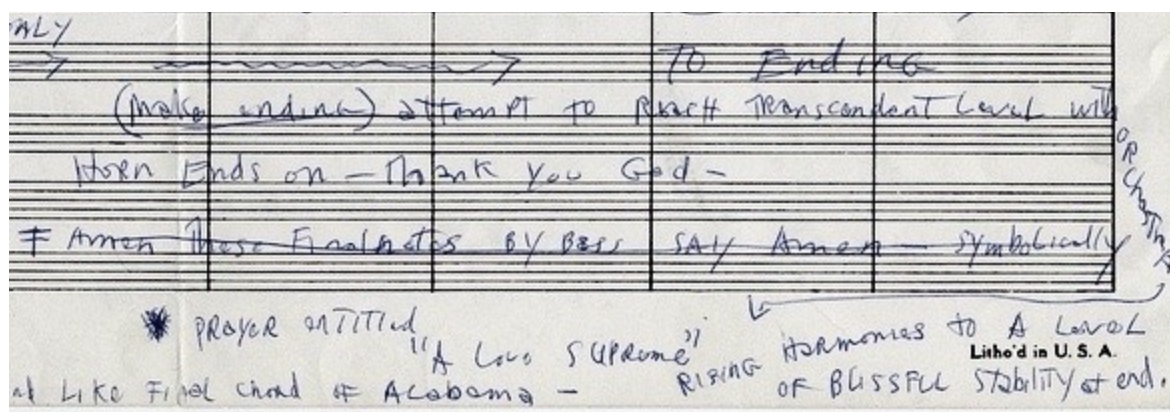 ONLY
TO Ending
(Make ending) attempt to Reach Transcendent Level with
ORCHESTRA
Horn Ends on — Thank You God —
Amen These Final notes BY Bass SAY Amen — symbolically
* PRAYER entitled
"A Love SUPREME"
RISING HARMONIES to A Level
OF BLISSFUL Stability at end.
Litho'd in U. S. A.
Like Final Chord OF Alabama —